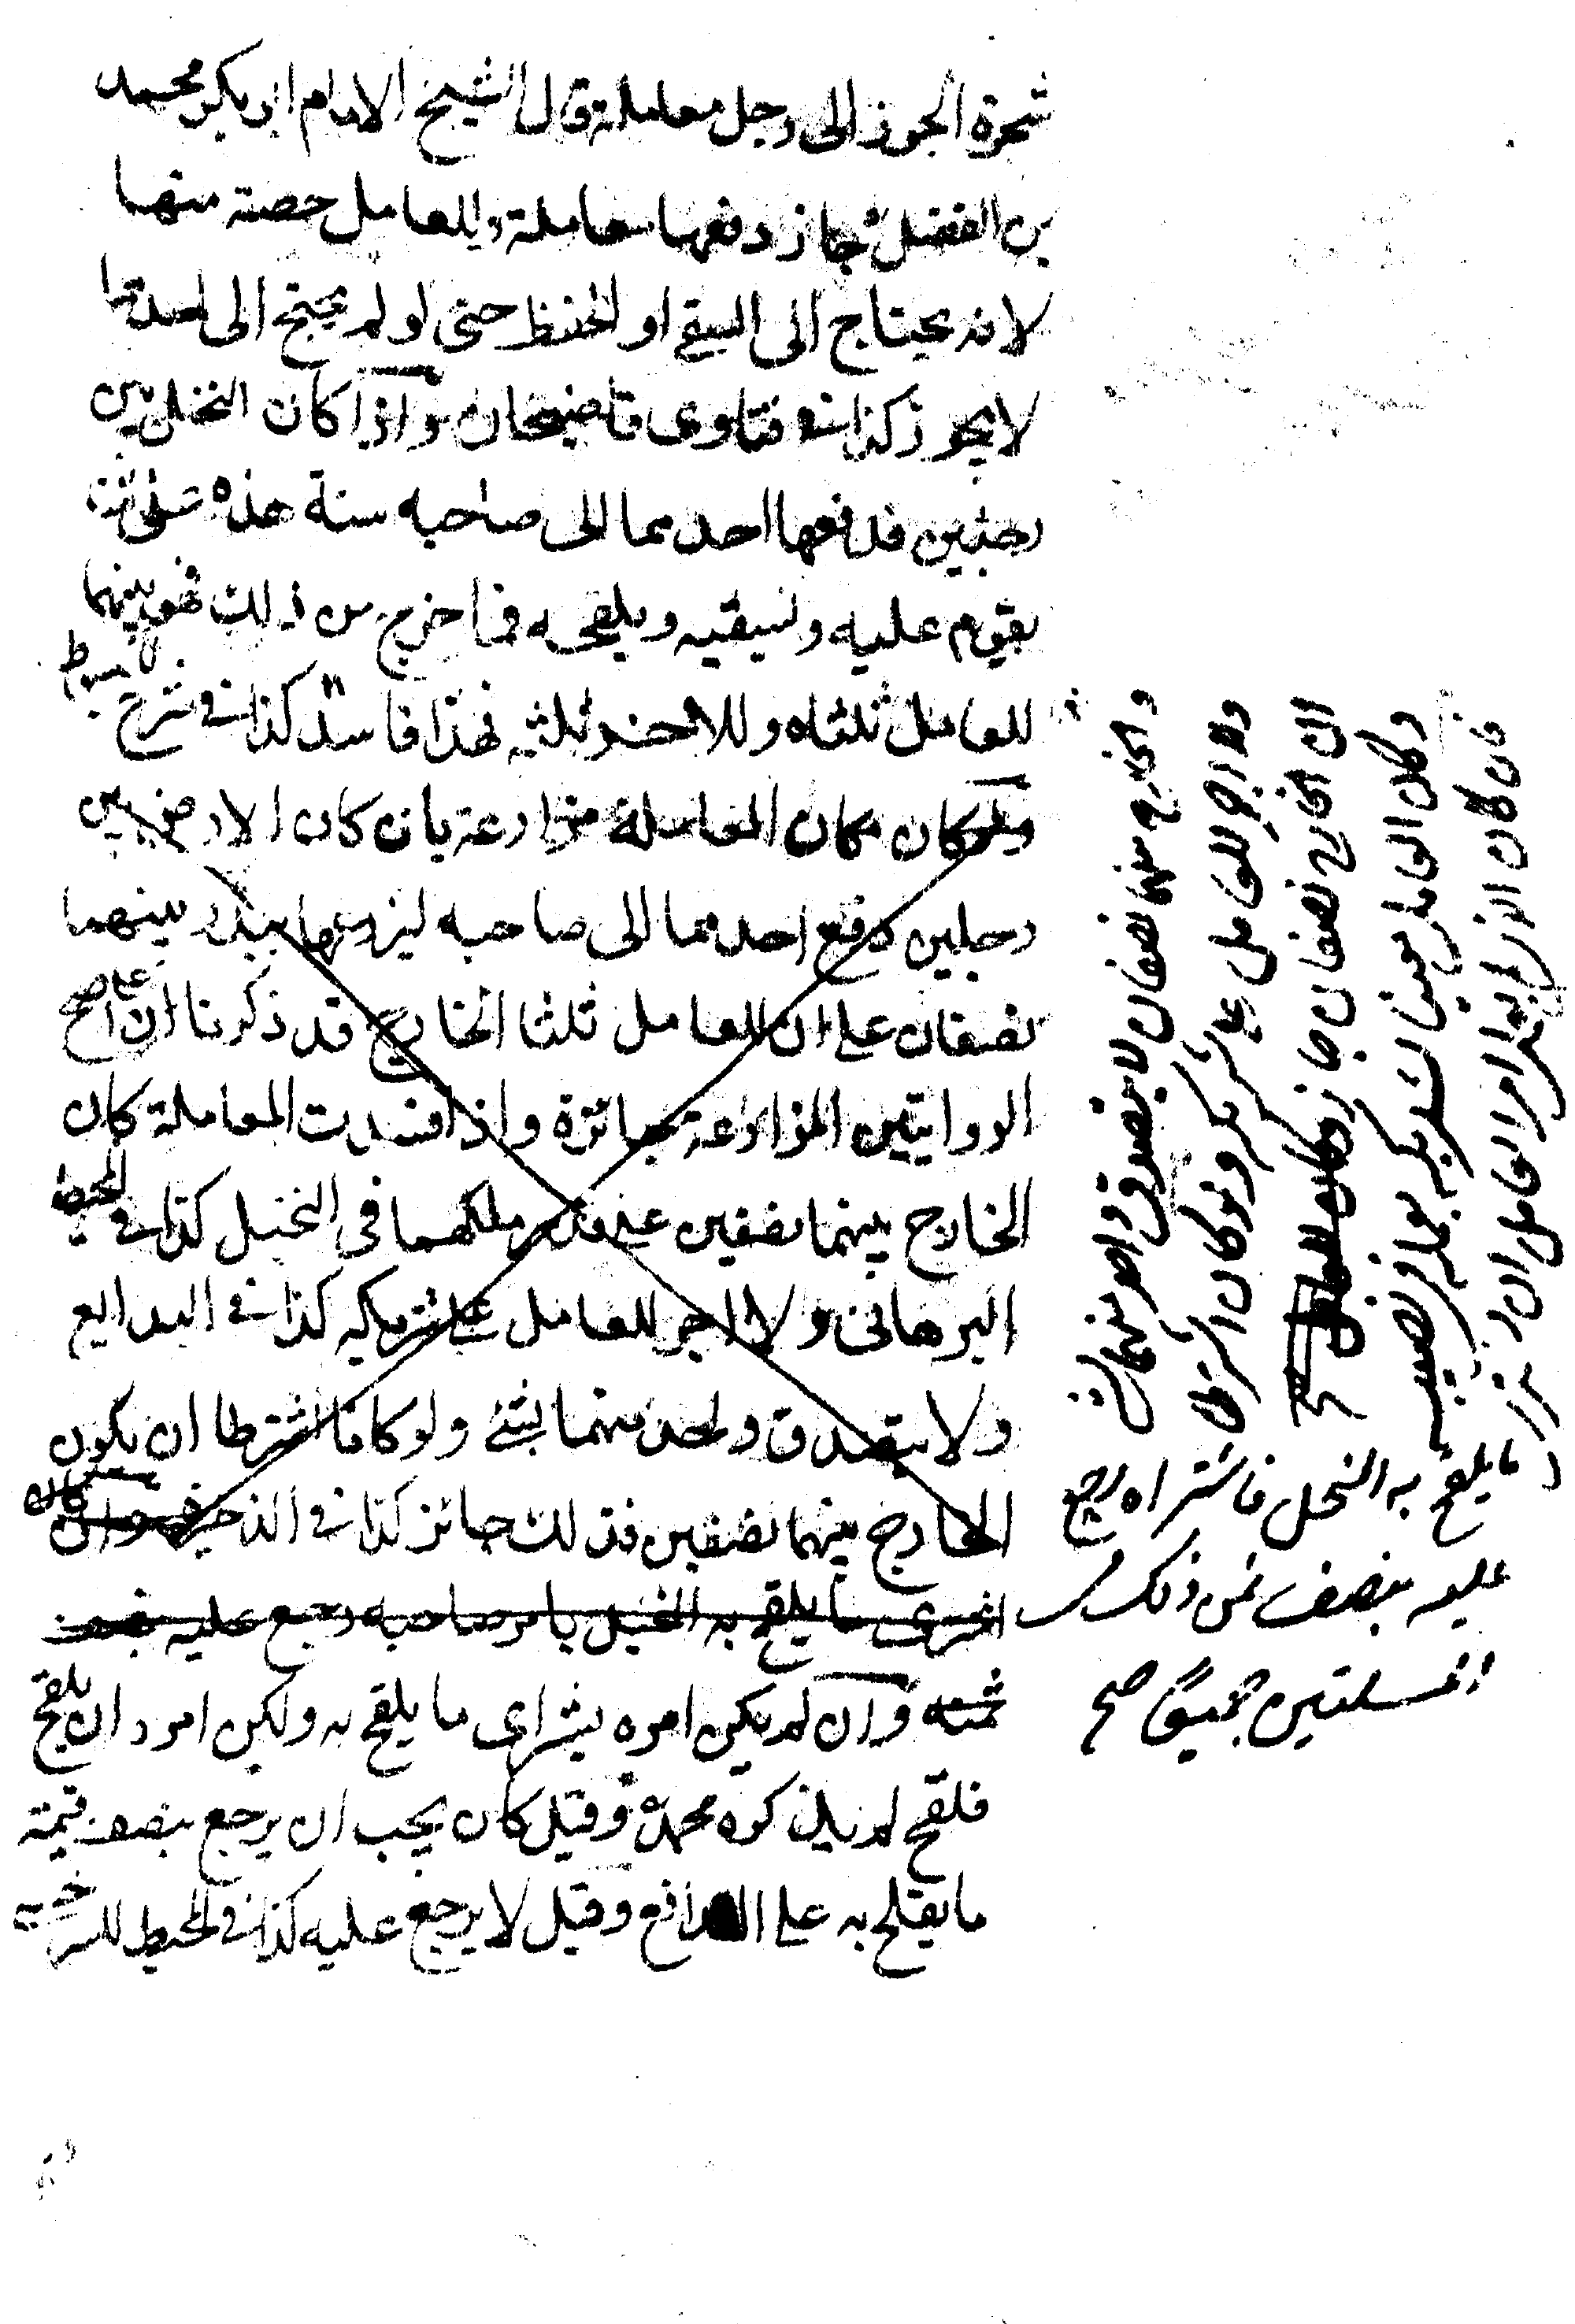 شجرة الجوز الى رجل معاملة قال الشيخ الامام ابو بكر محمد
بن الفضل جاز دفعها معاملة وللعامل حصة منها
لانه يحتاج الى السقى او الحفظ حتى لو لم يحتج الى احدهما
لا يجوز كذا فى فتاوى قاضيخان واذا كان النخل بين
رجلين فدفعها احدهما الى صاحبه سنة هذه على ان
يقوم عليه ويسقيه ويلقحه فما خرج من ذلك فهو بينهما
للعامل ثلثاه وللاخر ثلثه فهذا فاسد كذا فى شرح
ولو كان مكان المعاملة مزارعة بان كان الارض بين
رجلين دفع احدهما الى صاحبه ليزرعها ببذر بينهما
نصفان على ان للعامل ثلثا الخارج قد ذكرنا ان على اصح
الروايتين المزارعة جائزة واذا فسدت المعاملة كان
الخارج بينهما نصفين على قدر ملكهما فى النخيل كذا فى المحيط
البرهانى ولا اجر للعامل على شريكه كذا فى البدايع
ولا يتصدق واحد منهما بشئ ولو كانا اشترطا ان يكون
الخارج بينهما نصفين فذلك جائز كذا فى الذخيرة وان كان
اشترى ما يلقح به النخيل بامر صاحبه رجع عليه بنصف
ثمنه وان لم يكن امره بشراى ما يلقح به ولكن امره ان يلقح
فلقح لم يذكره محمد وقيل كان يجب ان يرجع بنصف قيمة
ما يقلح به على الدافع وقيل لا يرجع عليه كذا فى المحيط للسرخسى
والخارج بينهما نصفان لا يتصدق واحد منهما بشئ
ولا اجر للعامل على شريكه ولو كان اشترطا
ان الخارج نصفان جاز وكان
وكل العامل معين لشريكه بعمله فى نصيبه
فان كان الذى امر العامل ان
ما يلقح به النخل فاشتراه رجع
عليه بنصف ثمن ذلك فى
المسئلتين جميعا صح